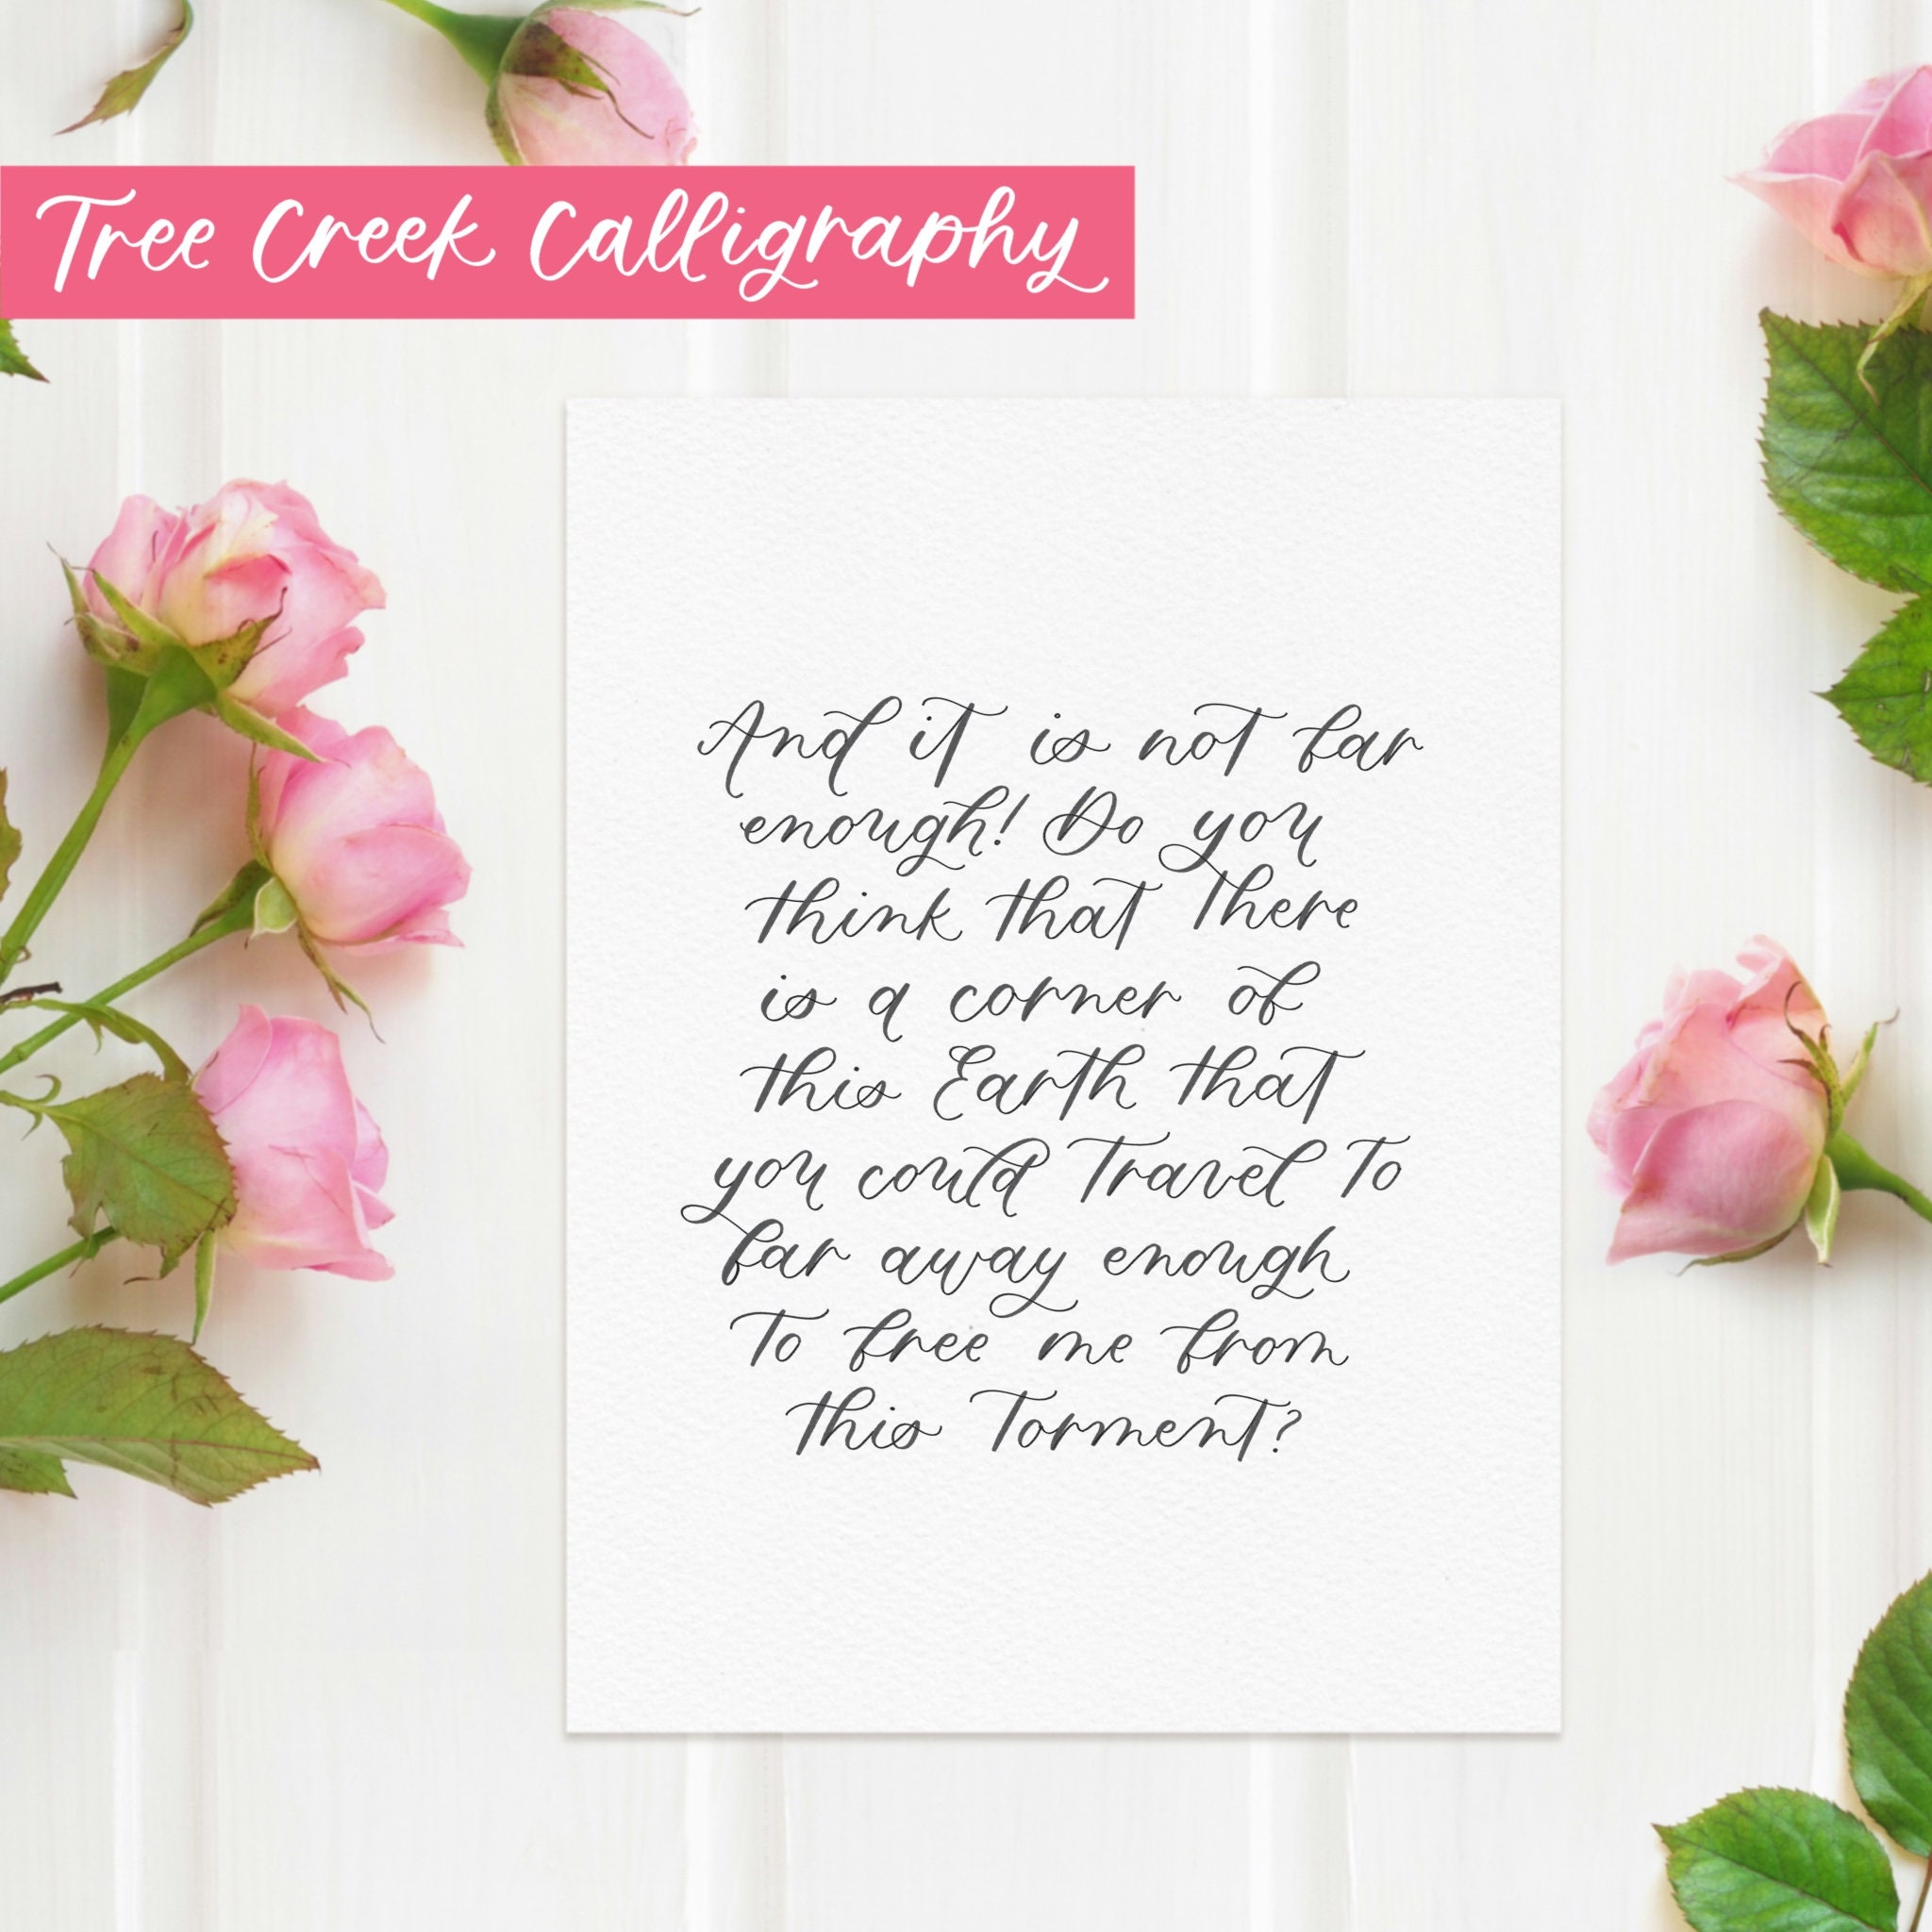 Tree Creek Calligraphy
And it is not far
enough! Do you
think that there
is a corner of
this Earth that
you could travel to
far away enough
to free me from
this torment?